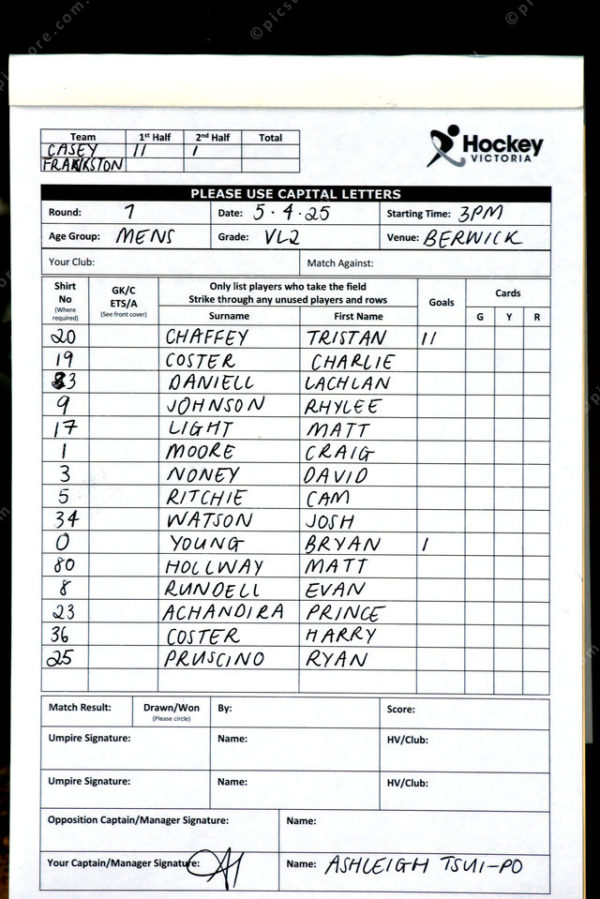 Team 1st Half 2nd Half Total
CASEY 11 1
FRANKSTON
Hockey
VICTORIA
PLEASE USE CAPITAL LETTERS
Round: 1 Date: 5.4.25 Starting Time: 3PM
Age Group: MENS Grade: VL2 Venue: BERWICK
Your Club: Match Against:
Shirt No (Where required) GK/C ETS/A (See front cover) Only list players who take the field Strike through any unused players and rows Goals Cards
Surname First Name G Y R
20 CHAFFEY TRISTAN 11
19 COSTER CHARLIE
83 DANIELL LACHLAN
9 JOHNSON RHYLEE
17 LIGHT MATT
1 MOORE CRAIG
3 NONEY DAVID
5 RITCHIE CAM
34 WATSON JOSH
0 YOUNG BRYAN 1
80 HOLLWAY MATT
8 RUNDELL EVAN
23 ACHANDIRA PRINCE
36 COSTER HARRY
25 PRUSCINO RYAN
Match Result: Drawn/Won (Please circle) By: Score:
Umpire Signature: Name: HV/Club:
Umpire Signature: Name: HV/Club:
Opposition Captain/Manager Signature: Name:
Your Captain/Manager Signature: Name: ASHLEIGH TSUI-PO